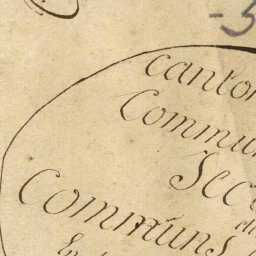 -5
canton
Commun
Sec
du
Communs
En